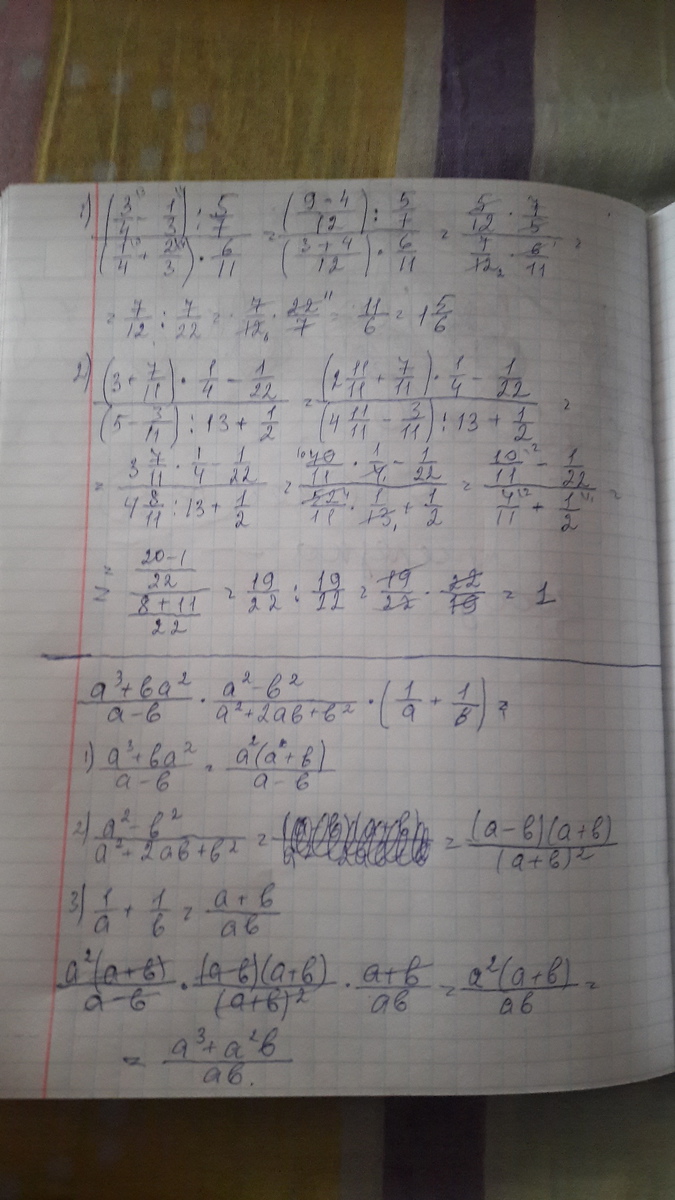 1) ((3/4 - 1/3) : 5/7) / ((1/4 + 2/3) · 6/11) = ((9-4)/12 : 5/7) / ((3+4)/12 · 6/11) = (5/12 · 7/5) / (7/12 · 6/11) =
= 7/12 : 7/22 = 7/12 · 22/7 = 11/6 = 1 5/6
2) ((3 + 7/11) · 1/4 - 1/22) / ((5 - 3/11) : 13 + 1/2) = ((2 11/11 + 7/11) · 1/4 - 1/22) / ((4 11/11 - 3/11) : 13 + 1/2) =
= (3 7/11 · 1/4 - 1/22) / (4 8/11 : 13 + 1/2) = (40/11 · 1/4 - 1/22) / (52/11 · 1/13 + 1/2) = (10/11 - 1/22) / (4/11 + 1/2) =
= ((20-1)/22) / ((8+11)/22) = 19/22 : 19/22 = 19/22 · 22/19 = 1
(a³+вa²)/(a-в) · (a²-в²)/(a²+2aв+в²) · (1/a + 1/в) =
1) (a³+вa²)/(a-в) = a²(a+в)/(a-в)
2) (a²-в²)/(a²+2aв+в²) = = (a-в)(a+в)/(a+в)²
3) 1/a + 1/в = (a+в)/aв
a²(a+в)/(a-в) · (a-в)(a+в)/(a+в)² · (a+в)/aв = a²(a+в)/aв =
= (a³+a²в)/aв.